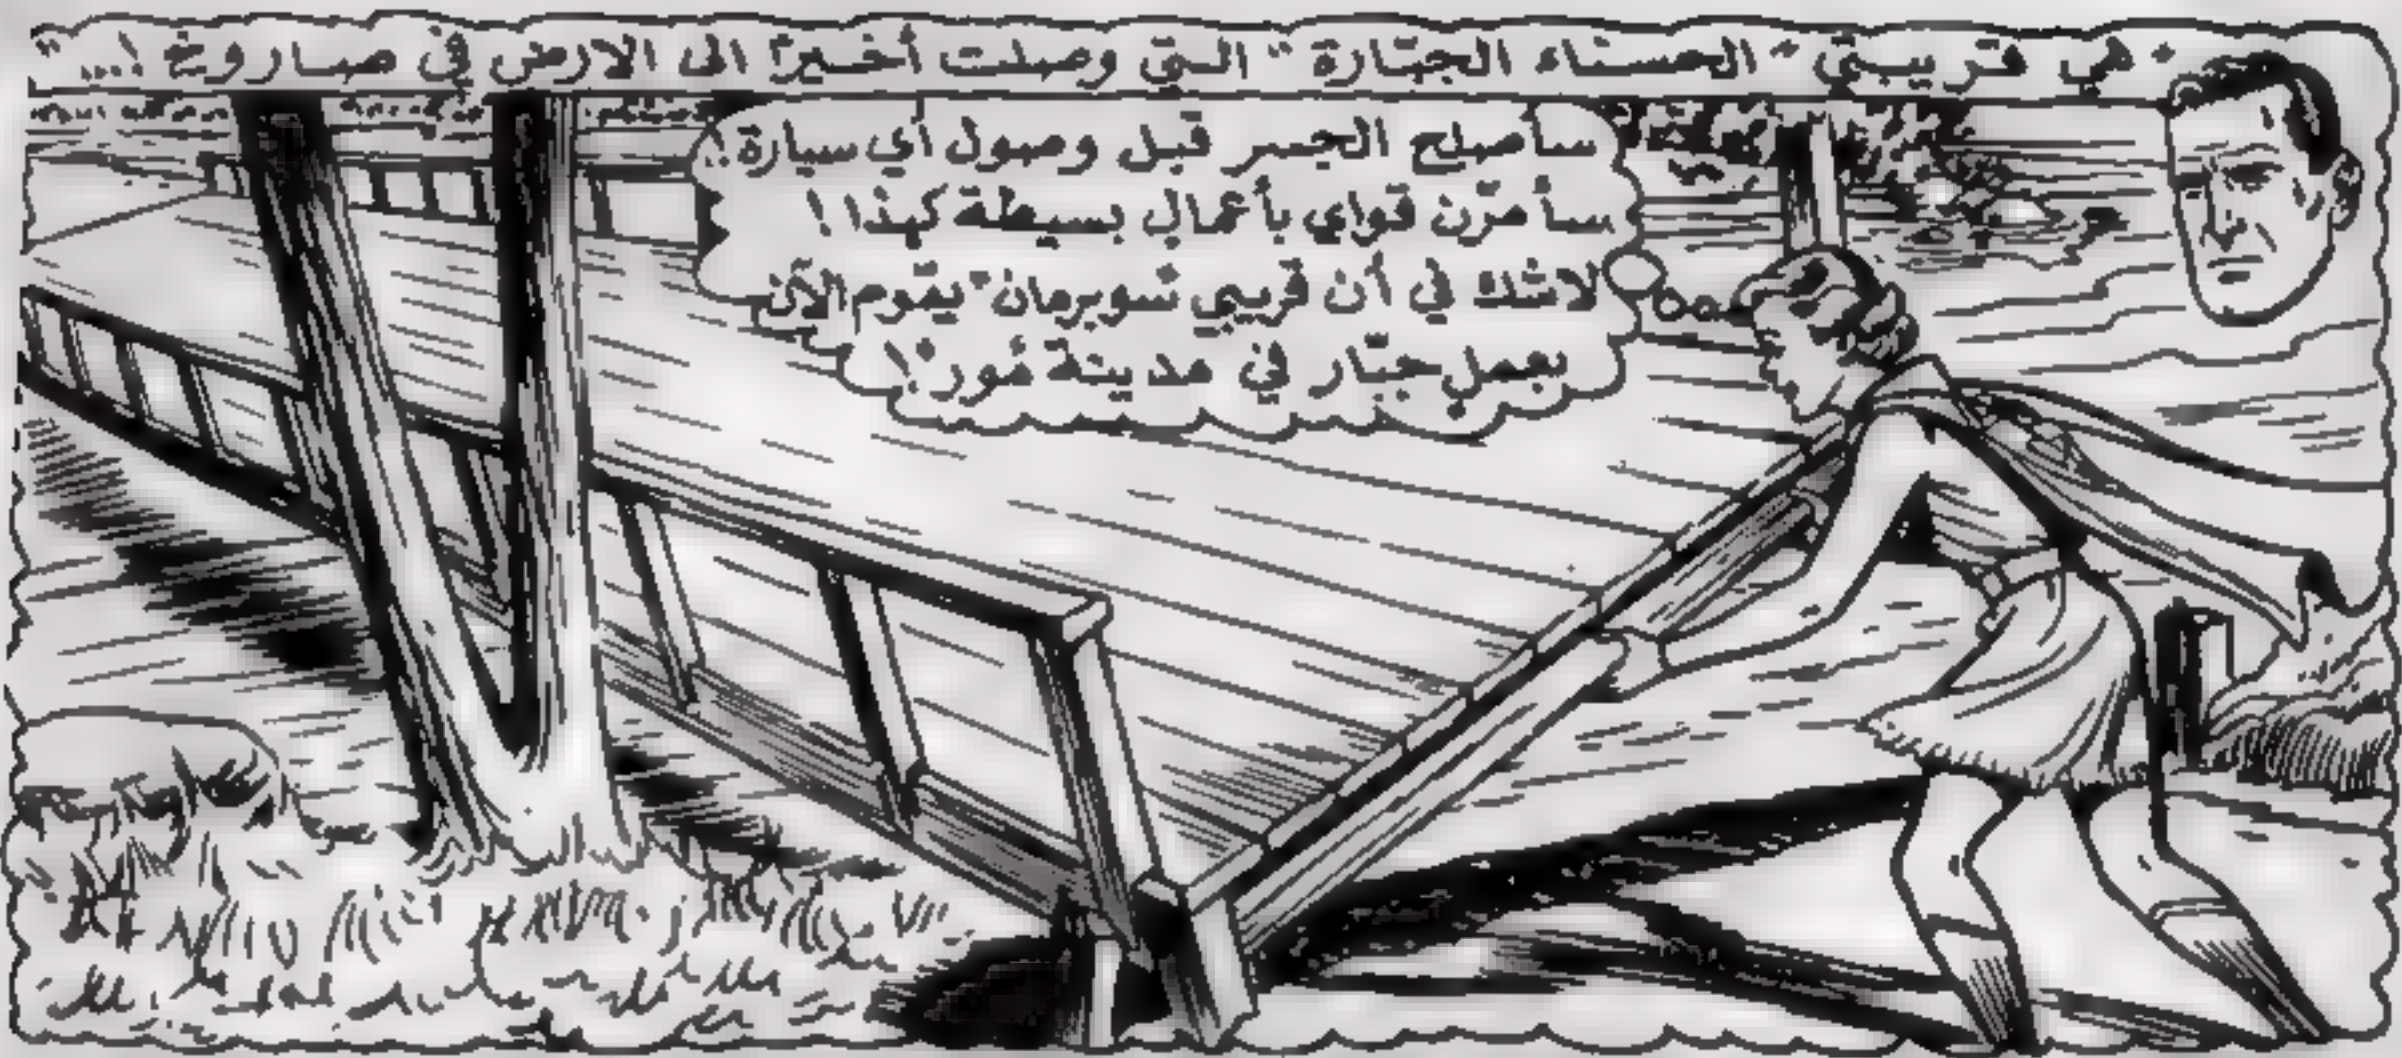 "هي قريبتي "الحسناء الجبّارة" التي وصلت أخيرًا الى الارض في صاروخ !..."
سأصلح الجسر قبل وصول أي سيارة !
سأمرّن قواي بأعمال بسيطة كهذا !
لاشك في أن قريبي "سوبرمان" يقوم الآن
بعمل جبّار في مدينة مُور !